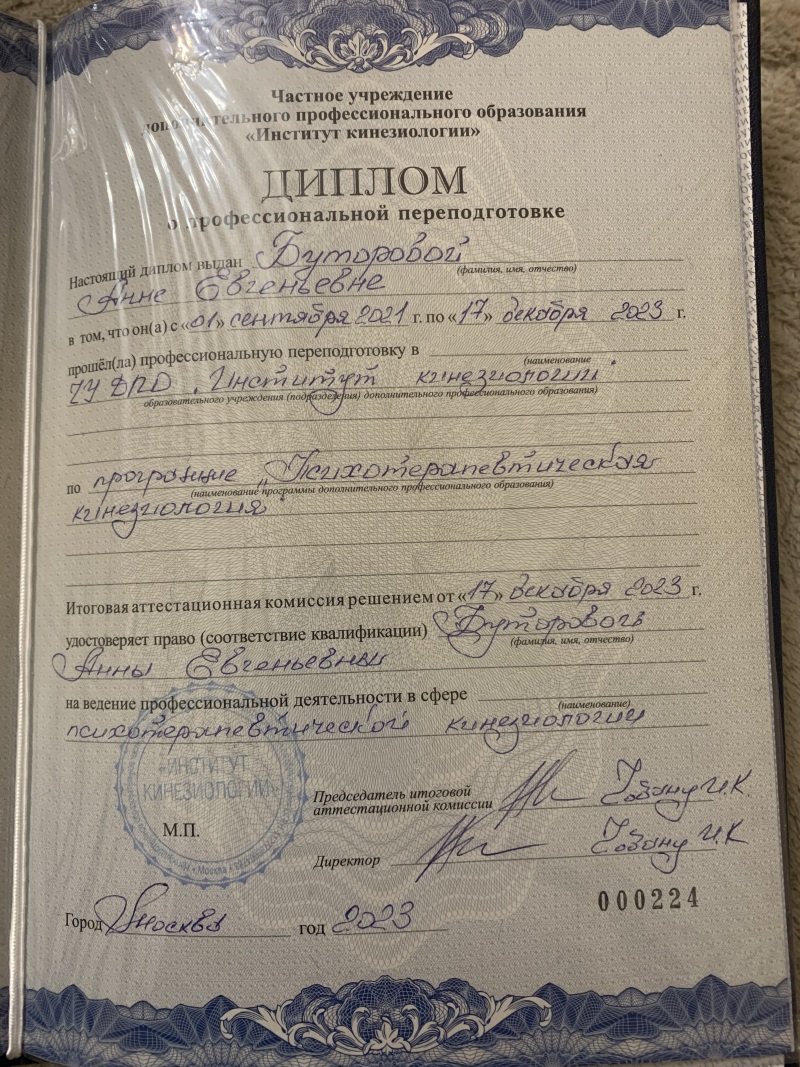 Частное учреждение
дополнительного профессионального образования
«Институт кинезиологии»
ДИПЛОМ
о профессиональной переподготовке
Настоящий диплом выдан Буторовой
(фамилия, имя, отчество)
Анне Евгеньевне
в том, что он(а) с «01» сентября 2021 г. по «17» декабря 2023 г.
прошёл(ла) профессиональную переподготовку в
(наименование
ЧУ ДПО „Институт кинезиологии"
образовательного учреждения (подразделения) дополнительного профессионального образования)
по программе „Психотерапевтическая
(наименование программы дополнительного профессионального образования)
кинезиология"
Итоговая аттестационная комиссия решением от «17» декабря 2023 г.
удостоверяет право (соответствие квалификации) Буторовой
(фамилия, имя, отчество)
Анны Евгеньевны
на ведение профессиональной деятельности в сфере
(наименование)
психотерапевтической кинезиологии
«ИНСТИТУТ
КИНЕЗИОЛОГИИ»
Москва
М.П.
Председатель итоговой
аттестационной комиссии И.К.
Директор И.К
000224
Город Москва год 2023